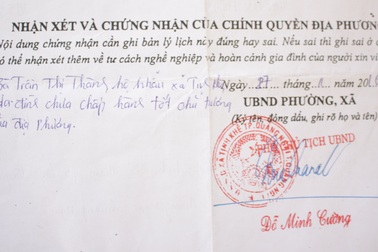 NHẬN XÉT VÀ CHỨNG NHẬN CỦA CHÍNH QUYỀN ĐỊA PHƯƠNG
Nội dung chứng nhận cần ghi bản lý lịch này đúng hay sai. Nếu sai thì ghi sai ở
có thể nhận xét thêm về tư cách nghề nghiệp và hoàn cảnh gia đình của người xin vi
Bà Trần Thị Thành hộ khẩu xã Tịnh
Ngày 27 tháng
gia đình chưa chấp hành tốt chủ trương
UBND PHƯỜNG, XÃ
của địa phương.
(Ký tên, đóng dấu, ghi rõ họ và tên)
TỊCH UBND
Đỗ Minh Cường